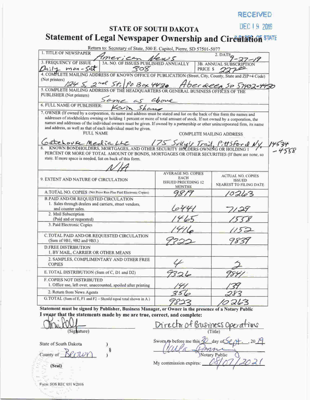 RECEIVED
DEC 19 2019
SEC. OF STATE
STATE OF SOUTH DAKOTA
Statement of Legal Newspaper Ownership and Circulation
Return to: Secretary of State, 500 E. Capitol, Pierre, SD 57501-5077
1. TITLE OF NEWSPAPER
American News
2. DATE
9-27-19
3. FREQUENCY OF ISSUE
Daily mon-Sat
3A. NO. OF ISSUES PUBLISHED ANNUALLY
308
3B. ANNUAL SUBSCRIPTION
PRICE $
4. COMPLETE MAILING ADDRESS OF KNOWN OFFICE OF PUBLICATION (Street, City, County, State and ZIP+4 Code)
(Not printers)
Aberdeen SD 57402-4430
5. COMPLETE MAILING ADDRESS OF THE HEADQUARTERS OR GENERAL BUSINESS OFFICES OF THE
PUBLISHER (Not printers)
Same as above
6. FULL NAME OF PUBLISHER:
7. OWNER (If owned by a corporation, its name and address must be stated and also on the back of this form the names and
addresses of stockholders owning or holding 1 percent or more of total amount of stock. If not owned by a corporation, the
names and addresses of the individual owners must be given. If owned by a partnership or other unincorporated firm, its name
and address, as well as that of each individual must be given.
FULL NAME
COMPLETE MAILING ADDRESS
Gatehouse Media LLC
Pittsford NY
8. KNOWN BONDHOLDERS, MORTGAGES, AND OTHER SECURITY HOLDERS OWNING OR HOLDING 1
PERCENT OR MORE OF TOTAL AMOUNT OF BONDS, MORTGAGES OR OTHER SECURITIES (If there are none, so
state. If more space is needed, list on back of this form.
N/A
9. EXTENT AND NATURE OF CIRCULATION
AVERAGE NO. COPIES
EACH
ISSUED PRECEDING 12
MONTHS
ACTUAL NO. COPIES
ISSUED
NEAREST TO FILING DATE
A. TOTAL NO. COPIES
9819
10263
B. PAID AND/OR REQUESTED CIRCULATION
1. Sales through dealers and carriers, street vendors,
and counter sales.
6441
7129
2. Mail Subscription
(Paid and/or requested)
1465
1558
3. Paid Electronic Copies
1416
1152
C. TOTAL PAID AND/OR REQUESTED CIRCULATION
(Sum of 9B1, 9B2 and 9B3.)
9322
9839
D. FREE DISTRIBUTION
1. BY MAIL, CARRIER OR OTHER MEANS
2. SAMPLES, COMPLIMENTARY AND OTHER FREE
COPIES
4
2
E. TOTAL DISTRIBUTION (Sum of C, D1 and D2)
9326
9841
F. COPIES NOT DISTRIBUTED
1. Office use, left over, unaccounted, spoiled after printing
141
139
2. Return from News Agents
356
283
G. TOTAL (Sum of E, F1 and F2 - Should equal total shown in A)
9823
10263
Statement must be signed by Publisher, Business Manager, or Owner in the presence of a Notary Public
I swear that the statements made by me are true, correct, and complete:
Director of Business Operations
(Signature)
(Title)
State of South Dakota )
County of Brown )
(Seal)
Sworn to before me this 30 day of Sept, 2019
(Notary Public)
My commission expires: